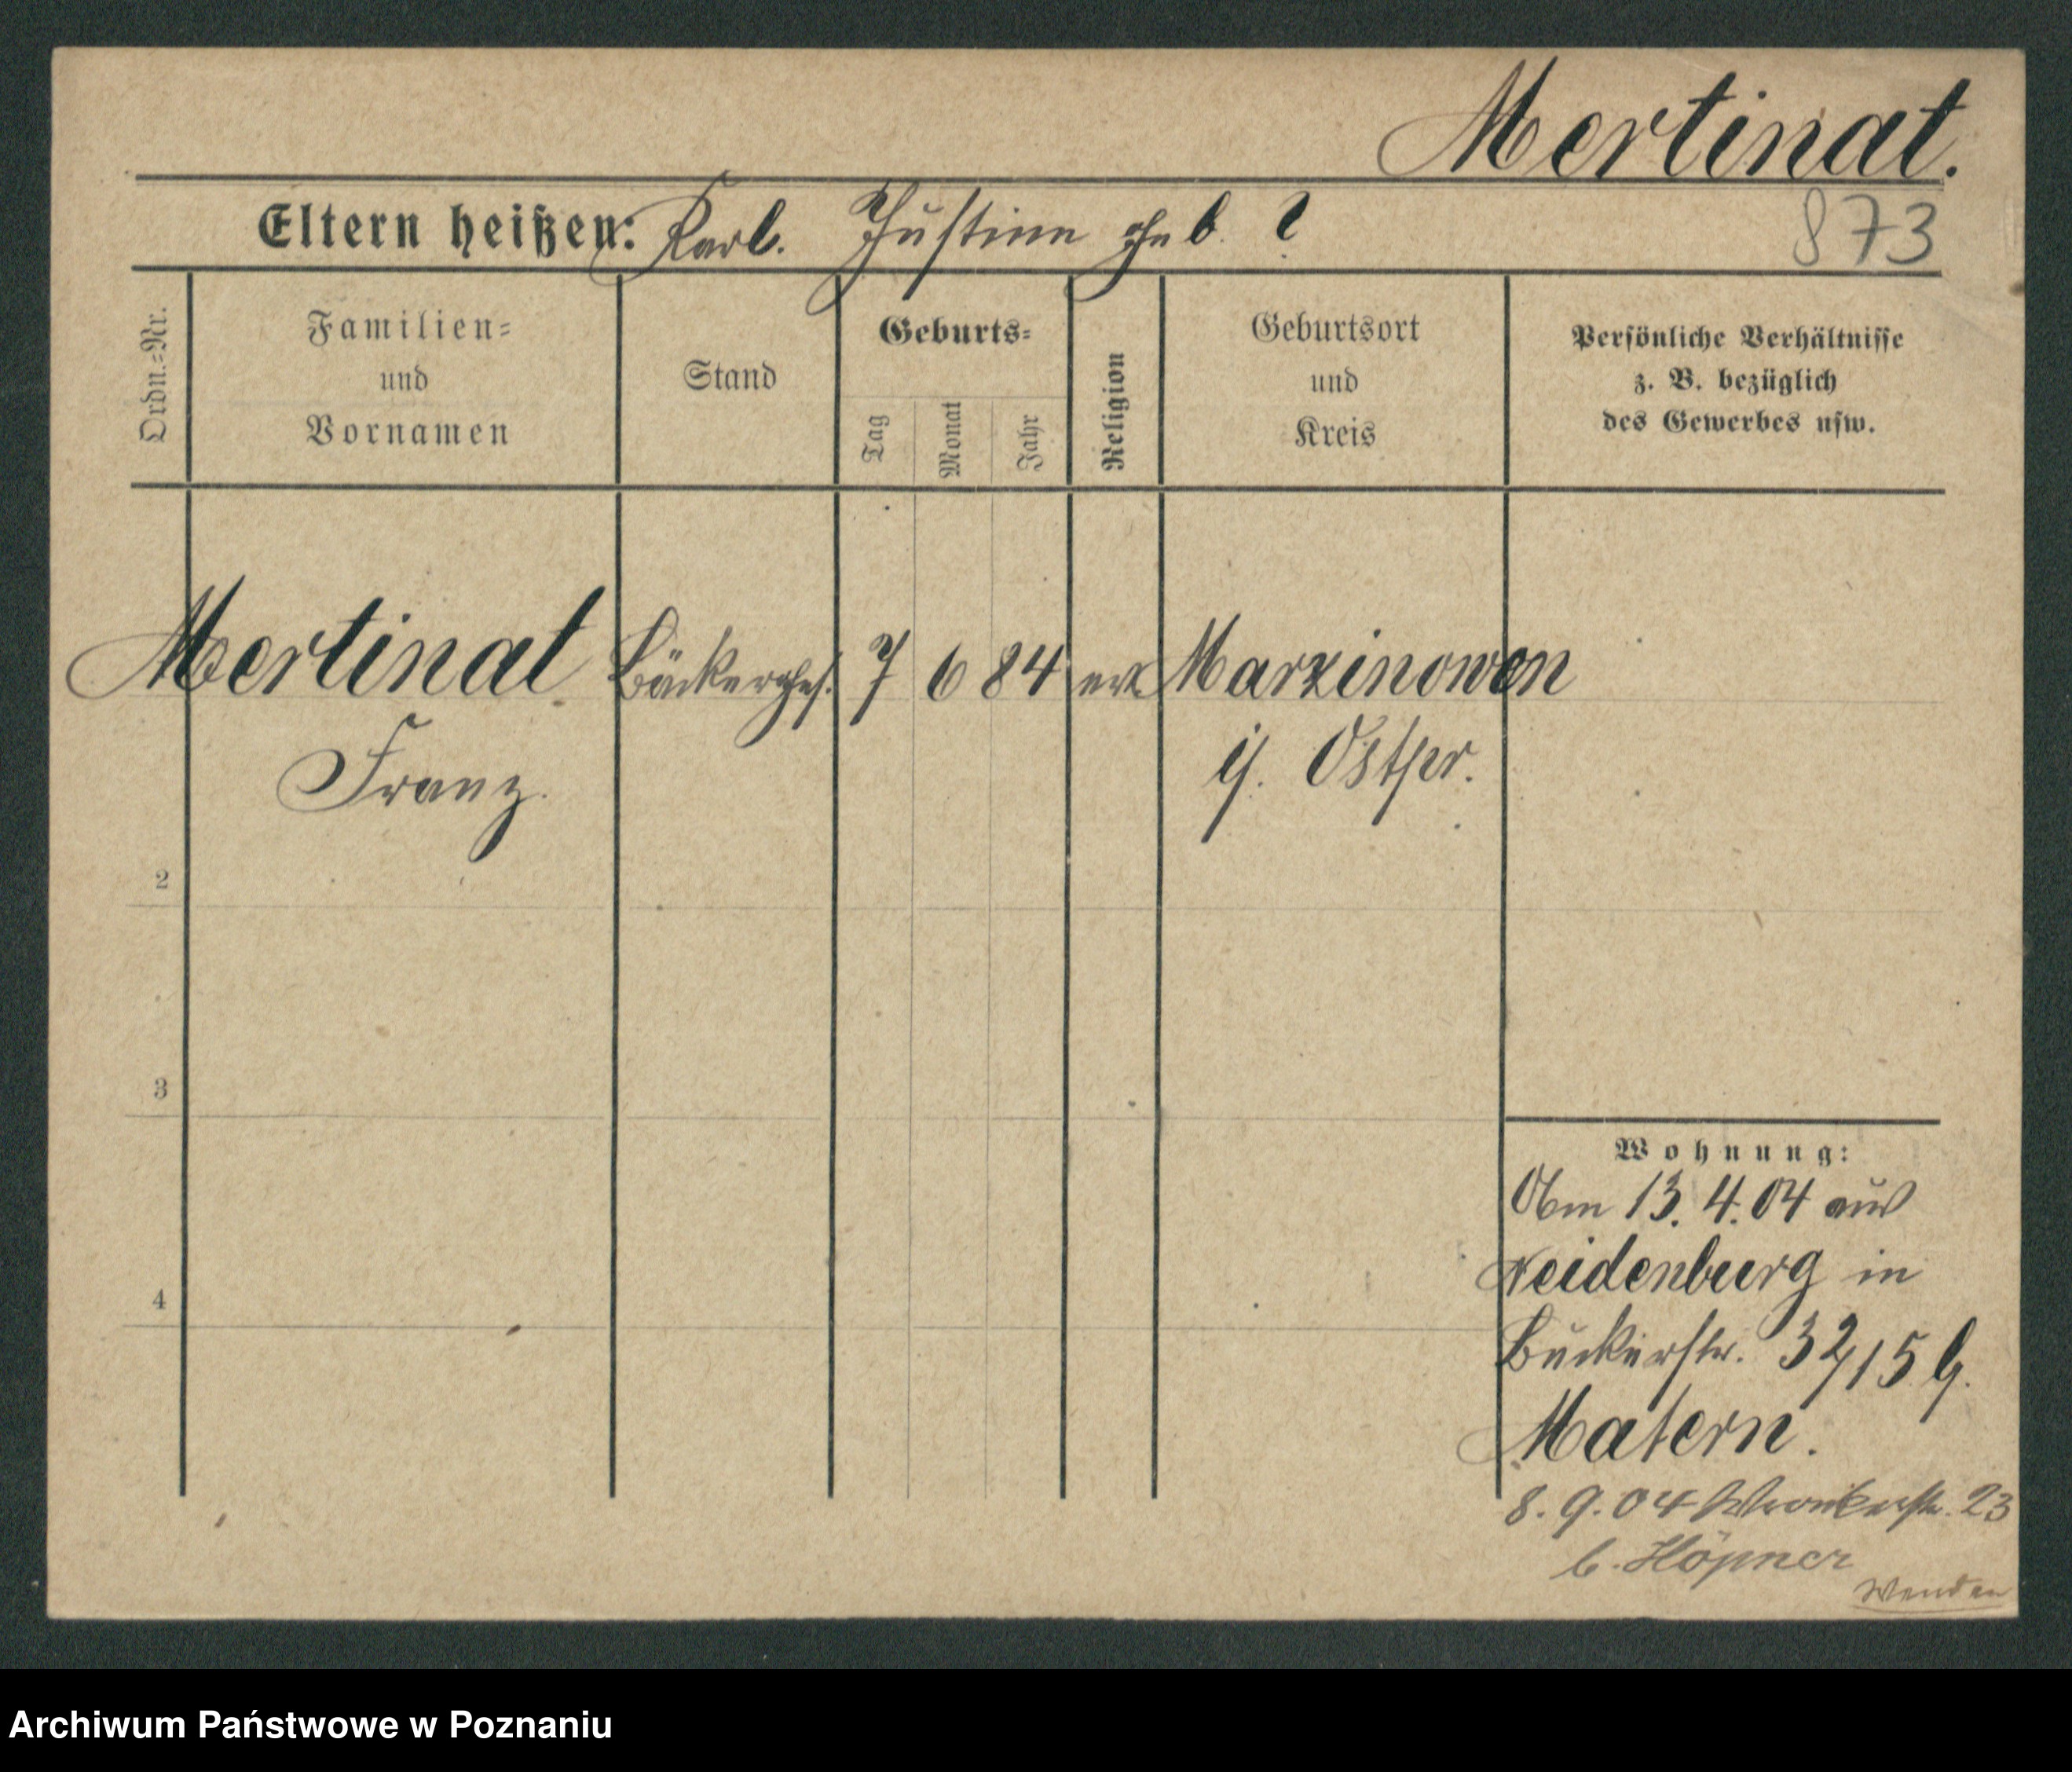 Mertinat.
Eltern heißen: Karl. Justine geb. ?
873
Ordn.-Nr.
Familien-
und
Vornamen
Stand
Geburts-
Tag
Monat
Jahr
Religion
Geburtsort
und
Kreis
Persönliche Verhältnisse
z. B. bezüglich
des Gewerbes usw.
Mertinat Bäckerges. 7 6 84 Marzinowen
Franz. i/. Ostpr.
2
3
4
Wohnung:
13. 4. 04 aus
Neidenburg in
Bukerstr. 32/15 b/.
Matern.
8. 9. 04 Wronkerstr. 23
b. Höpner
Wenden
Archiwum Państwowe w Poznaniu